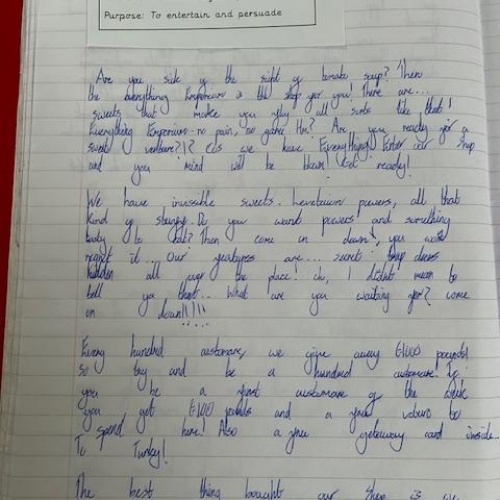 Purpose: To entertain and persuade
Are you sick of the sight of tomato soup? Then
the Everything Emporium is the shop for you! There are...
sweets that make you fly all sorts like that!
Everything Emporium: no pain, no game Hm? Are you ready for a
sweet we have Everything! Enter our shop
and your mind will be blown! Get ready!
We have invisable sweets. powers, all that
kind of stuff. Do you want powers and something
tasty to eat? Then come on down, you wont
regret it... Our features are... secret trap doors
hidden all over the place! oh, I didnt mean to
tell you that... What are you waiting for? come
on down!!!!!
Every hundred customers, we give away £1000 pounds!
so try and be a hundred customer! If
you be a first customare of the week
you get £100 pounds and a free to
spend here! Also a free getaway card inside...
To Turky!
The best thing bought our shop is we